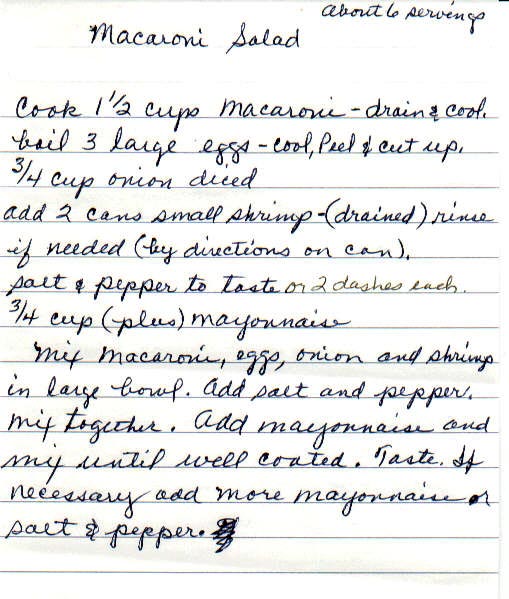 about 6 servings
Macaroni Salad
Cook 1 1/2 cups macaroni - drain & cool.
boil 3 large eggs - cool, Peel & cut up.
3/4 cup onion diced
add 2 cans small shrimp - (drained) rinse
if needed (by directions on can).
salt & pepper to taste or 2 dashes each.
3/4 cup (-plus) mayonnaise
Mix macaroni, eggs, onion and shrimp
in large bowl. Add salt and pepper.
Mix together. Add mayonnaise and
mix until well coated. Taste. If
necessary add more mayonnaise or
salt & pepper.